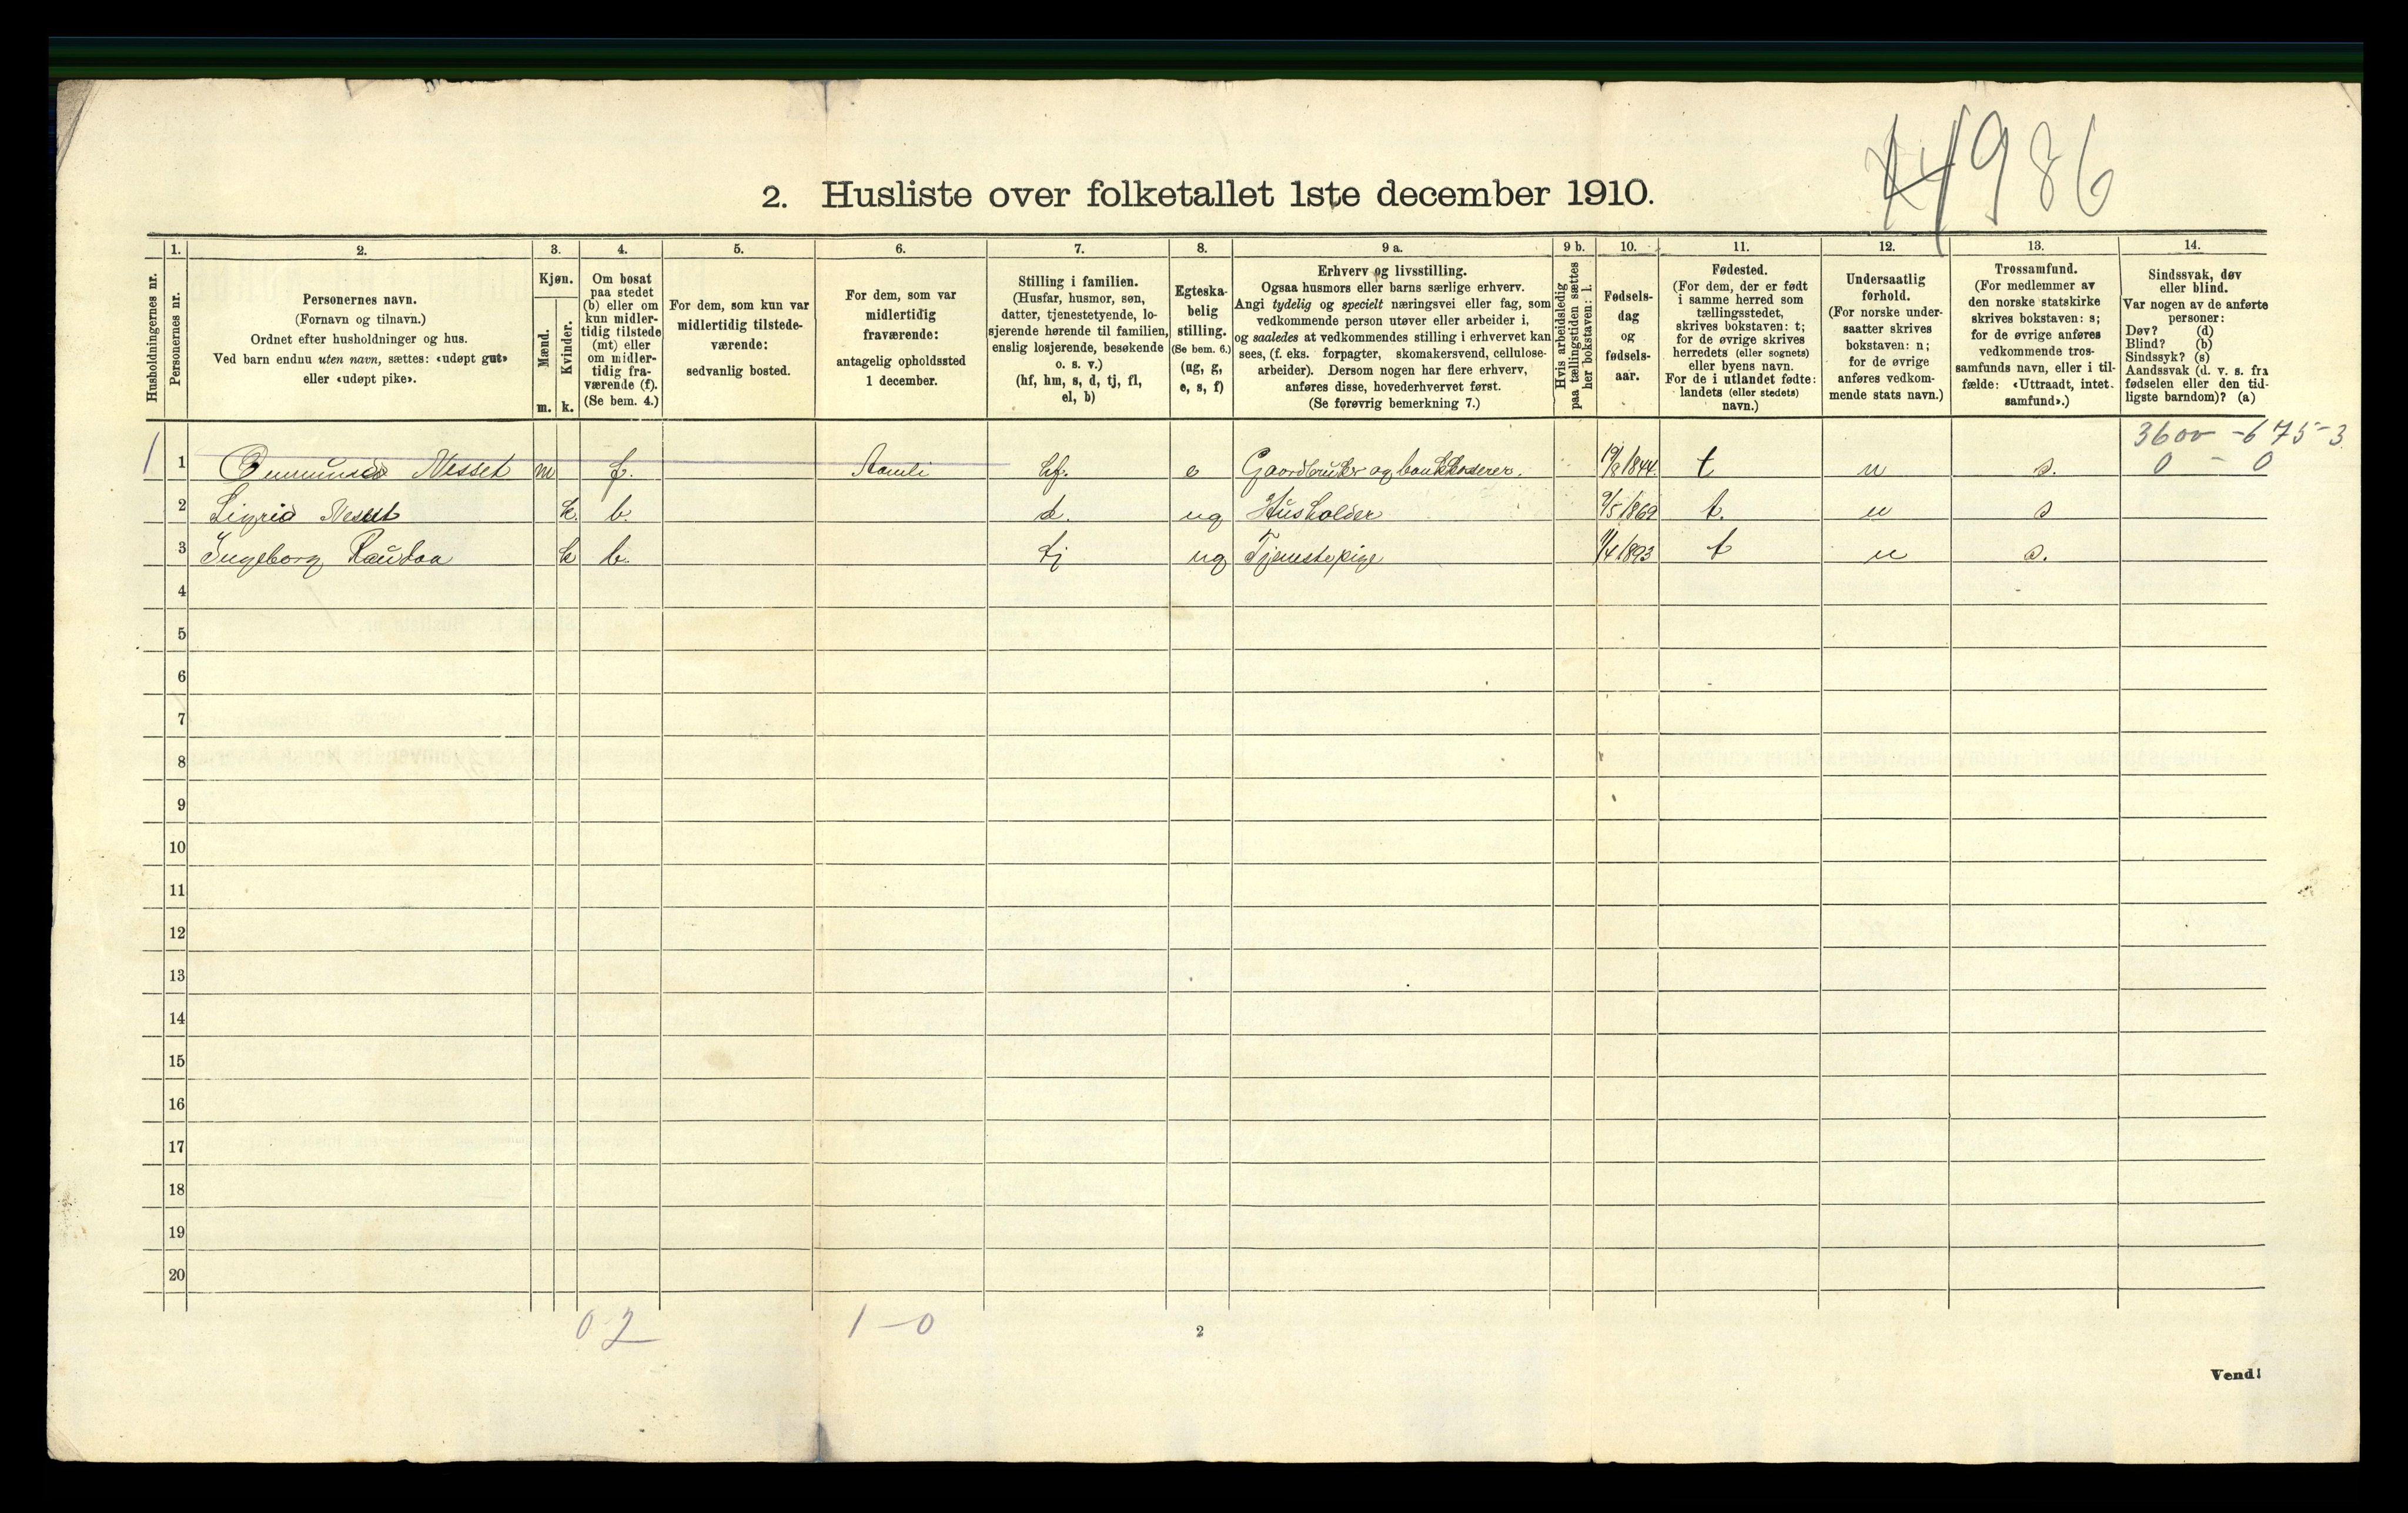 986
2. Husliste over folketallet 1ste december 1910.
Husholdningernes nr.
1. Personernes nr.
2. Personernes navn. (Fornavn og tilnavn.) Ordnet efter husholdninger og hus. Ved barn endnu uten navn, sættes: «udøpt gut» eller «udøpt pike».
3. Kjøn. Mænd. m. Kvinder. k.
4. Om bosat paa stedet (b) eller om kun midler-tidig tilstede (mt) eller om midler-tidig fra-værende (f). (Se bem. 4.)
5. For dem, som kun var midlertidig tilstede-værende: sedvanlig bosted.
6. For dem, som var midlertidig fraværende: antagelig opholdssted 1 december.
7. Stilling i familien. (Husfar, husmor, søn, datter, tjenestetyende, lo-sjerende hørende til familien, enslig losjerende, besøkende o. s. v.) (hf, hm, s, d, tj, fl, el, b)
8. Egteska-belig stilling. (Se bem. 6.) (ug, g, e, s, f)
9 a. Erhverv og livsstilling. Ogsaa husmors eller barns særlige erhverv. Angi tydelig og specielt næringsvei eller fag, som vedkommende person utøver eller arbeider i, og saaledes at vedkommendes stilling i erhvervet kan sees, (f. eks. forpagter, skomakersvend, cellulose-arbeider). Dersom nogen har flere erhverv, anføres disse, hovederhvervet først. (Se forøvrig bemerkning 7.)
9 b. Hvis arbeidsledig paa tællingstiden sættes her bokstaven: l.
10. Fødsels-dag og fødsels-aar.
11. Fødested. (For dem, der er født i samme herred som tællingsstedet, skrives bokstaven: t; for de øvrige skrives herredets (eller sognets) eller byens navn. For de i utlandet fødte: landets (eller stedets) navn.)
12. Undersaatlig forhold. (For norske under-saatter skrives bokstaven: n; for de øvrige anføres vedkom-mende stats navn.)
13. Trossamfund. (For medlemmer av den norske statskirke skrives bokstaven: s; for de øvrige anføres vedkommende tros-samfunds navn, eller i til-fælde: «Uttraadt, intet samfund».)
14. Sindssvak, døv eller blind. Var nogen av de anførte personer: Døv? (d) Blind? (b) Sindssyk? (s) Aandssvak (d. v. s. fra fødselen eller den tid-ligste barndom)? (a)
3600 - 675 - 3
1 1 Nesset m f. Aamli hf. e Gaardbruker og bankkaserer. 19/8 1844 t n s. 0 - 0
2 Sigrid Nesset k. b. d. ug Husholder 9/5 1869 t. n s
3 Ingeborg k b. tj ug Tjenestepige 1/4 1893 t n s.
4
5
6
7
8
9
10
11
12
13
14
15
16
17
18
19
20
0 2 1 - 0
2
Vend!